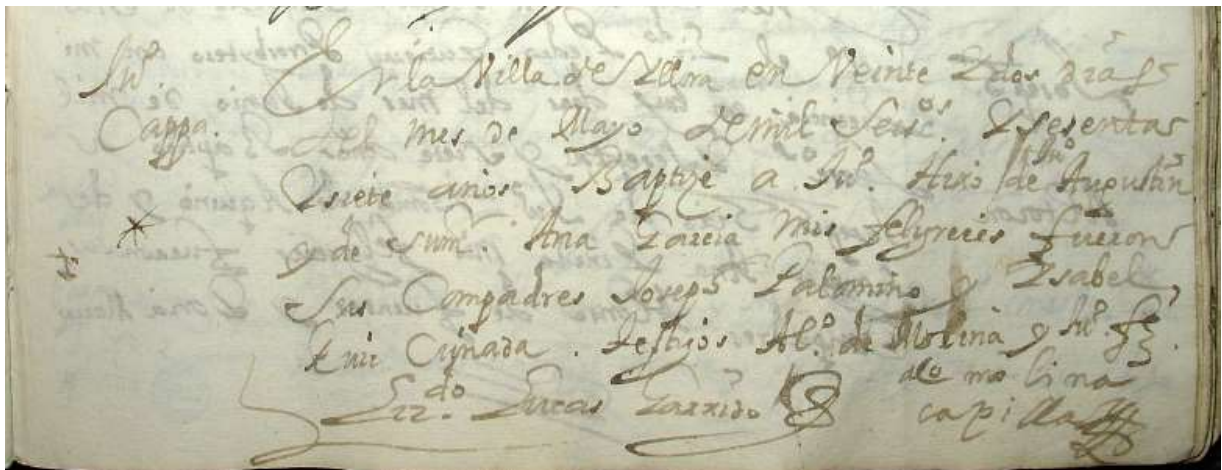 Juº
Cappa.
En la Villa de Illora en Veinte Edos Dias
del mes de Mayo demil Seiscºs. Esesenta
Esiete años Baptiçe a Juº. Hixo de Juº Augustin
y de sum. Ana Garcia mis feligreses fueron
sus Compadres Joseph Palomino y Isabel
Ruiz Cuñada. Testigos Alº. de Molina y Juº. frz.
Lizdº. Lucas Garrido
alº molina
capilla